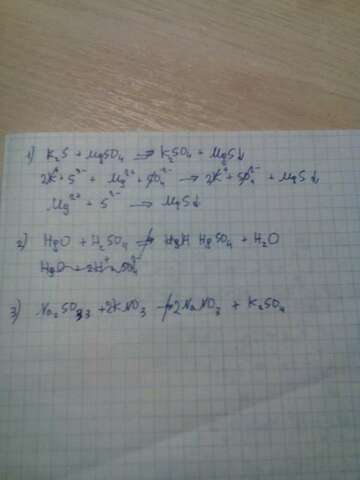 1) K₂S + MgSO₄ ⇒ K₂SO₄ + MgS↓
2K⁺ + S²⁻ + Mg²⁺ + SO₄²⁻ → 2K⁺ + SO₄²⁻ + MgS↓
Mg²⁺ + S²⁻ → MgS↓
2) HgO + H₂SO₄ ↛ HgSO₄ + H₂O
HgO + 2H⁺ + SO₄²⁻
3) Na₂SO₃ + 2KNO₃ ↛ 2NaNO₃ + K₂SO₄